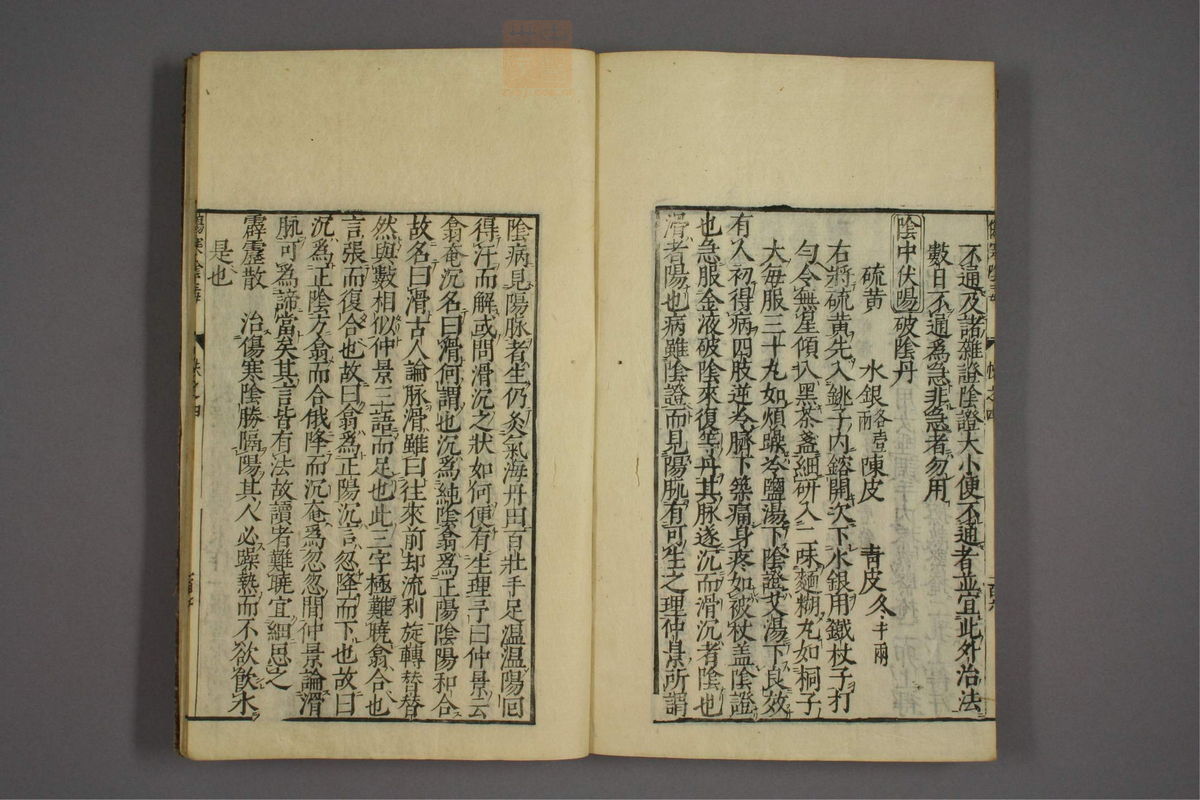 不通及諸雜證陰證大小便不通者並宜此外治法
數日不通爲急非急者勿用
陰中伏陽破陰丹
硫黄 水銀各壹兩 陳皮 青皮各半兩
右將硫黄先入銚子內鎔開次下水銀用鐵杖子打
勻令無星傾入黑茶盞細研入二味麵糊丸如桐子
大每服三十丸如煩躁冷鹽湯下陰證艾湯下良效
有人初得病四肢逆冷臍下築痛身疼如被杖盖陰證
也急服金液破陰來復等丹其脉遂沉而滑沉者陰也
滑者陽也病雖陰證而見陽脉有可生之理仲景所謂
陰病見陽脉者生仍灸氣海丹田百壯手足温温陽回
得汗而解或問滑沉之狀如何便有生理予曰仲景云
翕奄沉名曰滑何謂也沉爲純陰翕爲正陽陰陽和合
故名曰滑古人論脉滑雖曰往來前却流利旋轉替替
然與數相似仲景三語而足也此三字極難曉翕合也
言張而復合也故曰翕爲正陽沉言忽降而下也故曰
沉爲正陰方翕而合俄降而沉奄爲忽忽間仲景論滑
脉可爲諦當矣其言皆有法故讀者難曉宜細思之
霹靂散 治傷寒陰勝隔陽其人必躁熱而不欲飮水
是也